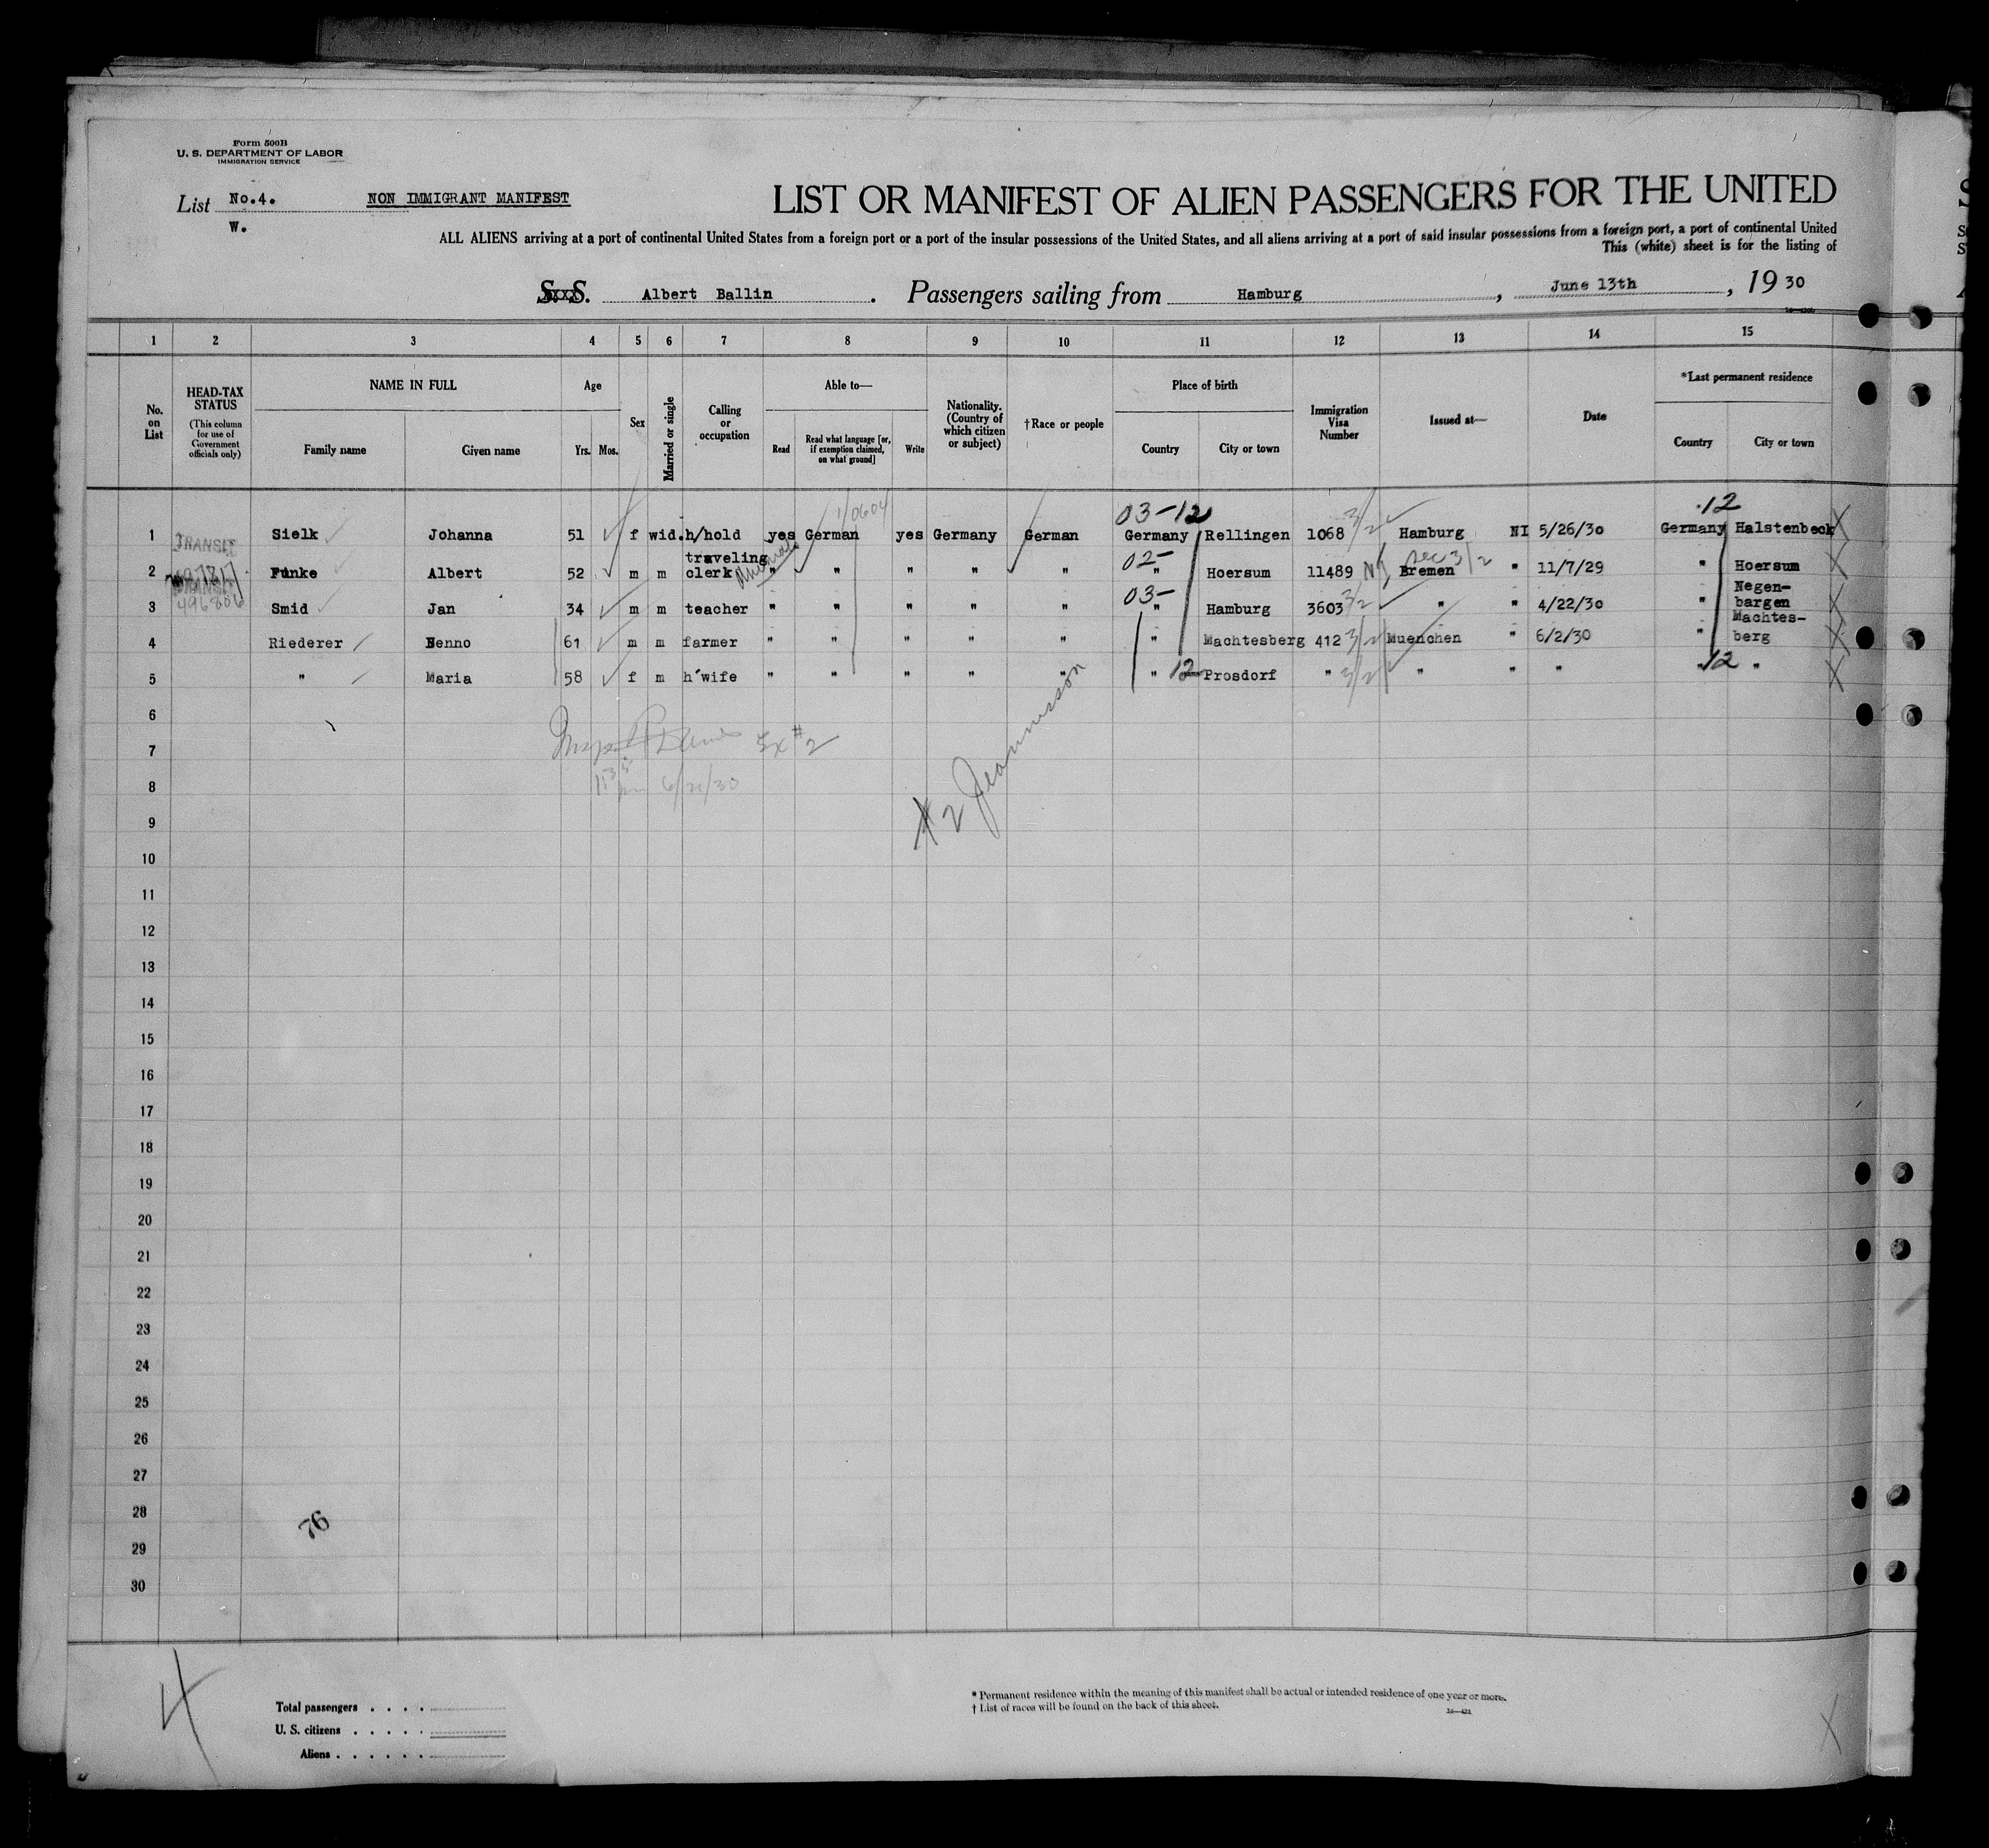 Form 500B
U. S. DEPARTMENT OF LABOR
IMMIGRATION SERVICE
List No.4. NON IMMIGRANT MANIFEST
W.
LIST OR MANIFEST OF ALIEN PASSENGERS FOR THE UNITED
ALL ALIENS arriving at a port of continental United States from a foreign port or a port of the insular possessions of the United States, and all aliens arriving at a port of said insular possessions from a foreign port, a port of continental United
This (white) sheet is for the listing of
S. S. Albert Ballin . Passengers sailing from Hamburg , June 13th , 19 30
1 2 3 4 5 6 7 8 9 10 11 12 13 14 15
No. on List
HEAD-TAX STATUS
(This column for use of Government officials only)
NAME IN FULL
Family name Given name
Age
Yrs. Mos.
Sex
Married or single
Calling or occupation
Able to—
Read Read what language [or, if exemption claimed, on what ground] Write
Nationality. (Country of which citizen or subject)
†Race or people
Place of birth
Country City or town
Immigration Visa Number
Issued at—
Date
*Last permanent residence
Country City or town
03-12 12
1 Sielk Johanna 51 f wid. h/hold yes German yes Germany German Germany Rellingen 1068 3/2 Hamburg NI 5/26/30 Germany Halstenbeck
TRANSIT
2 Funke Albert 52 m m traveling clerk " " " " " 02- " Hoersum 11489 Bremen " 11/7/29 " Hoersum
3 496806 Smid Jan 34 m m teacher " " " " " 03- " Hamburg 3603 3/2 " " 4/22/30 " Negen-bargen
4 Riederer Benno 61 m m farmer " " " " " " Machtesberg 412 3/2 Muenchen " 6/2/30 " Machtes-berg
5 " Maria 58 f m h'wife " " " " " " 12 Prosdorf " 3/2 " " " " 12 "
6
7 Ex #2
8
9 #2 Jeannesson
10
11
12
13
14
15
16
17
18
19
20
21
22
23
24
25
26
27
28
76
29
30
4
Total passengers . . . .
U. S. citizens . . . . .
Aliens . . . . . .
* Permanent residence within the meaning of this manifest shall be actual or intended residence of one year or more.
† List of races will be found on the back of this sheet.